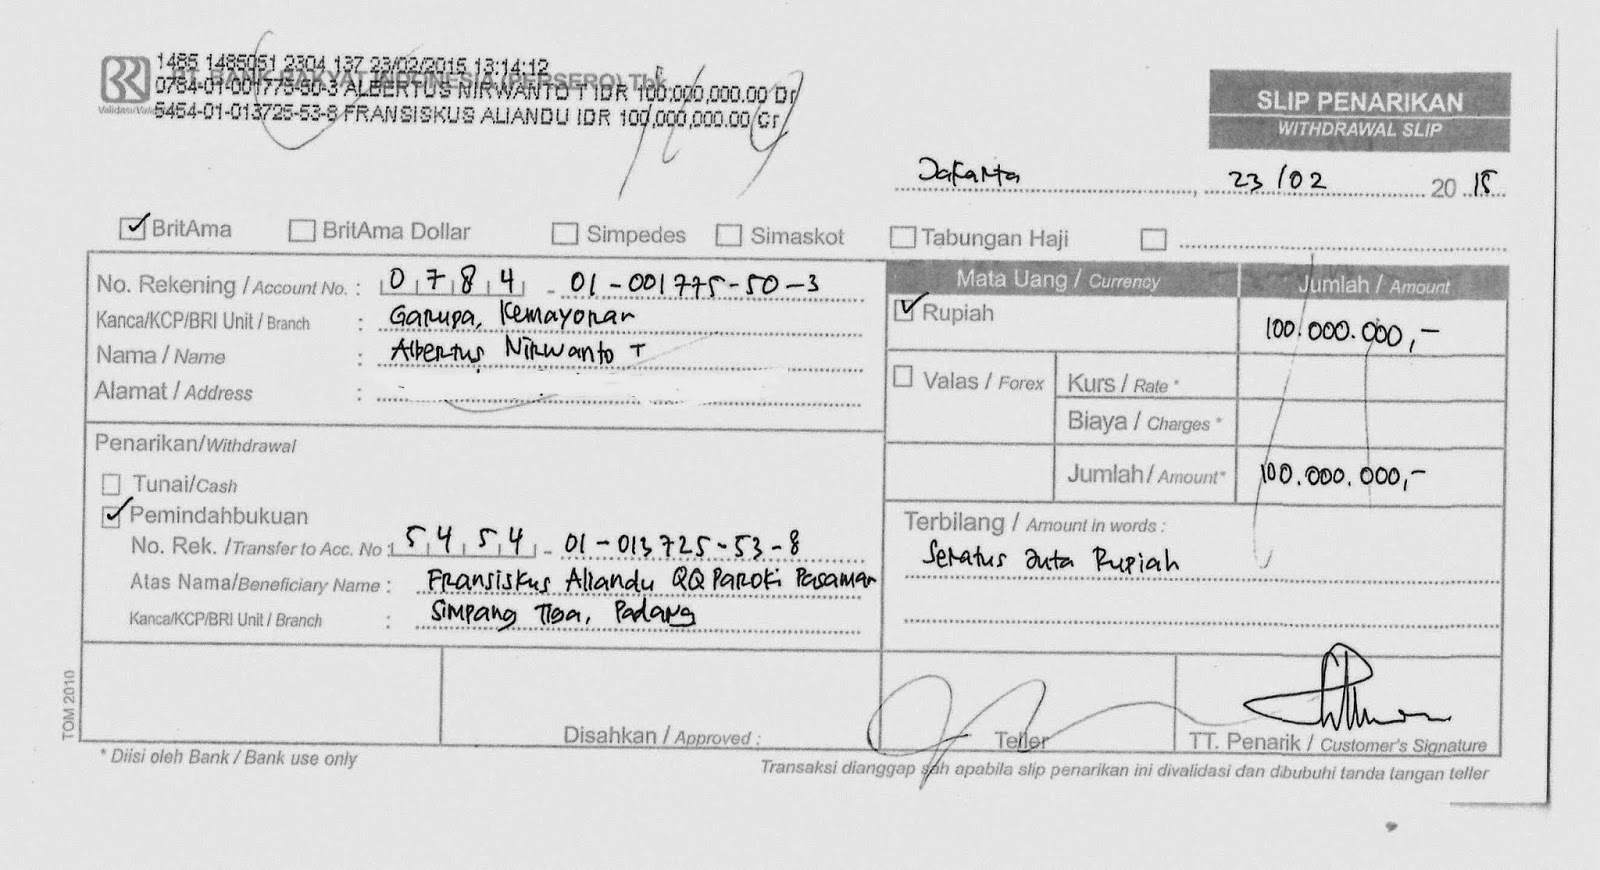 1485 1485051 2304 137 23/02/2015 13:14:12
PT. BANK RAKYAT INDONESIA (PERSERO) Tbk
0784-01-001775-50-3 ALBERTUS NIRWANTO T IDR 100,000,000.00 Dr
Validasi/
5454-01-013725-53-8 FRANSISKUS ALIANDU IDR 100,000,000.00 Cr
SLIP PENARIKAN
WITHDRAWAL SLIP
Jakarta, 23/02 2015
BritAma BritAma Dollar Simpedes Simaskot Tabungan Haji
No. Rekening / Account No. : 0784 - 01-001775-50-3
Kanca/KCP/BRI Unit / Branch : Garupa, Kemayoran
Nama / Name : Albertus Nirwanto T
Alamat / Address :
Mata Uang / Currency Jumlah / Amount
Rupiah 100.000.000,-
Valas / Forex Kurs / Rate *
Biaya / Charges *
Jumlah / Amount* 100.000.000,-
Penarikan/Withdrawal
Tunai/Cash
Pemindahbukuan
No. Rek. /Transfer to Acc. No : 5454 - 01-013725-53-8
Atas Nama/Beneficiary Name : Fransiskus Aliandu QQ Paroki Pasaman
Kanca/KCP/BRI Unit / Branch : Simpang Tiga, Padang
Terbilang / Amount in words :
Seratus Juta Rupiah
Disahkan / Approved :
Teller
TT. Penarik / Customer's Signature
TOM 2010
* Diisi oleh Bank / Bank use only
Transaksi dianggap sah apabila slip penarikan ini divalidasi dan dibubuhi tanda tangan teller